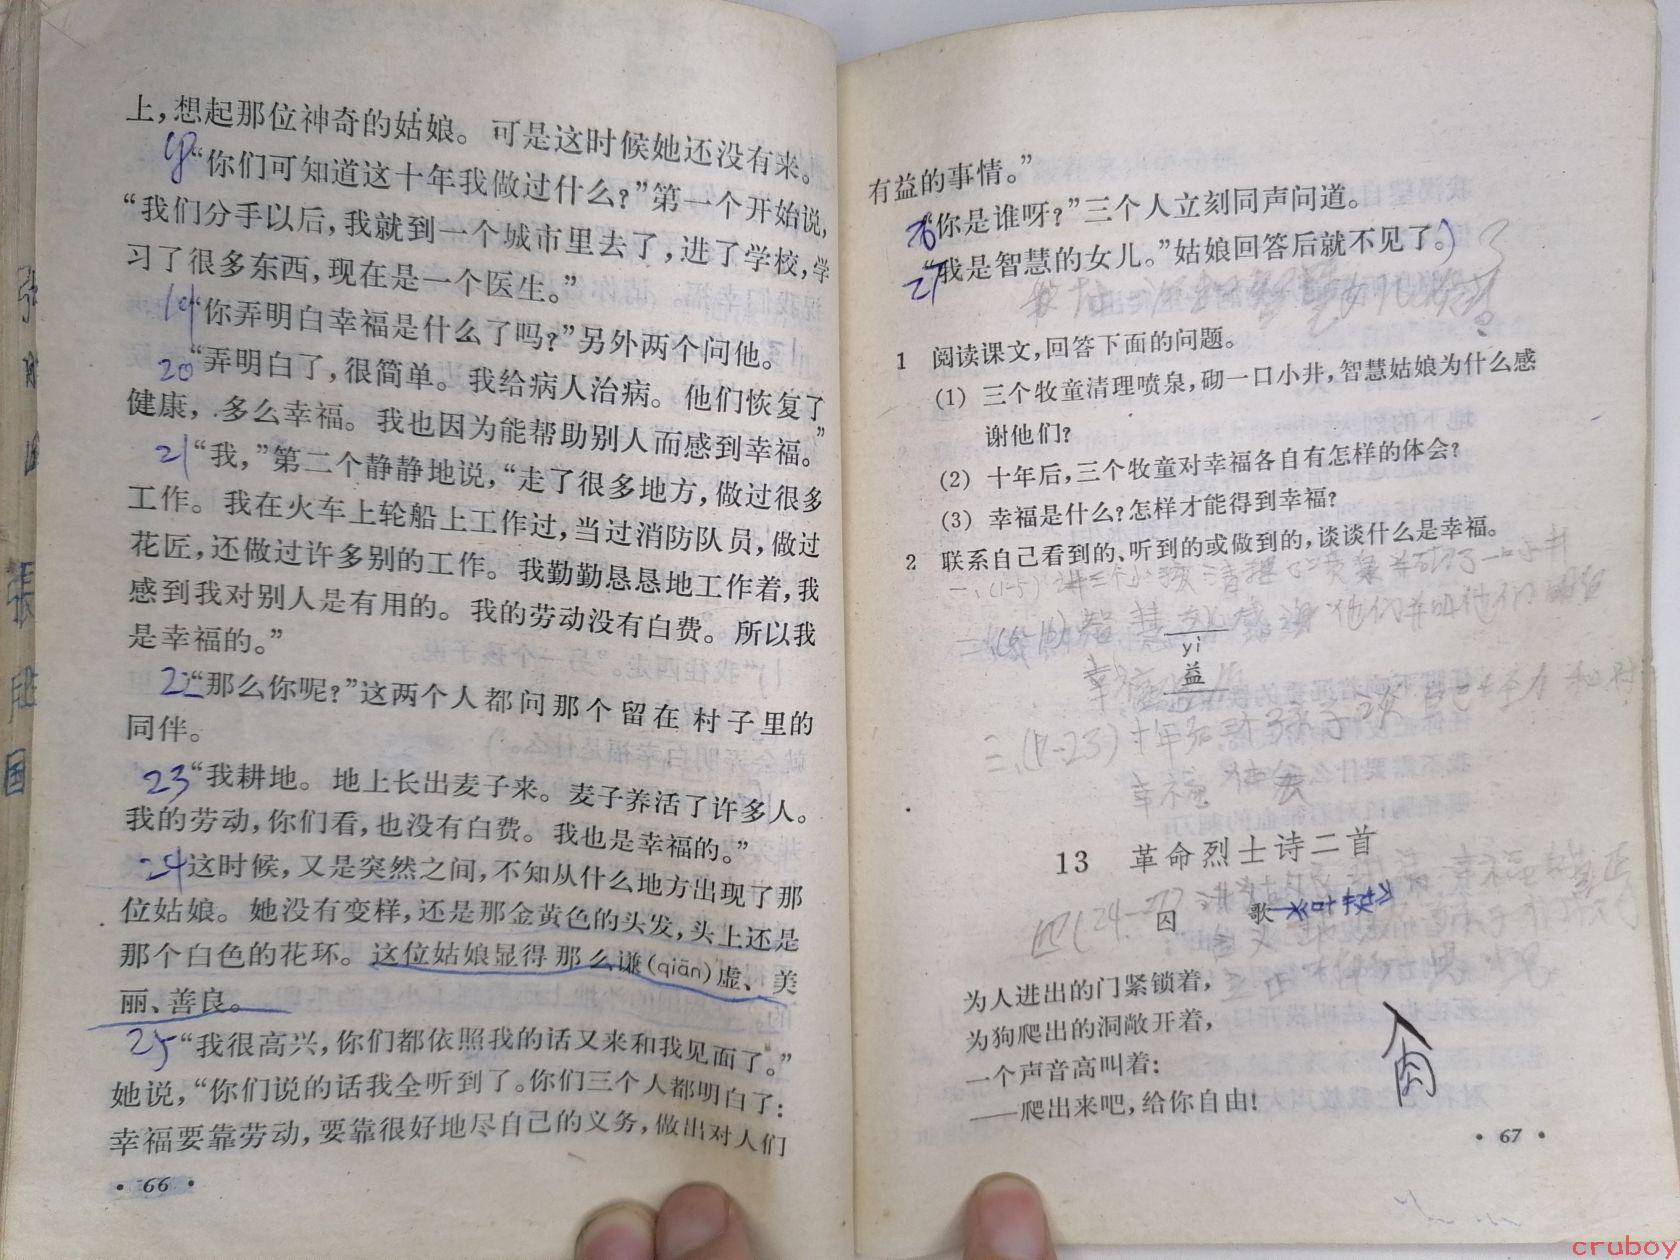 上,想起那位神奇的姑娘。可是这时候她还没有来。
18“你们可知道这十年我做过什么?”第一个开始说,
“我们分手以后,我就到一个城市里去了,进了学校,学
习了很多东西,现在是一个医生。”
19“你弄明白幸福是什么了吗?”另外两个问他。
20“弄明白了,很简单。我给病人治病。他们恢复了
健康,多么幸福。我也因为能帮助别人而感到幸福。”
21“我,”第二个静静地说,“走了很多地方,做过很多
工作。我在火车上轮船上工作过,当过消防队员,做过
花匠,还做过许多别的工作。我勤勤恳恳地工作着,我
感到我对别人是有用的。我的劳动没有白费。所以我
是幸福的。”
22“那么你呢?”这两个人都问那个留在村子里的
同伴。
23“我耕地。地上长出麦子来。麦子养活了许多人。
我的劳动,你们看,也没有白费。我也是幸福的。”
24这时候,又是突然之间,不知从什么地方出现了那
位姑娘。她没有变样,还是那金黄色的头发,头上还是
那个白色的花环。这位姑娘显得那么谦(qiān)虚、美
丽、善良。
25“我很高兴,你们都依照我的话又来和我见面了。”
她说,“你们说的话我全听到了。你们三个人都明白了:
幸福要靠劳动,要靠很好地尽自己的义务,做出对人们
·66·
有益的事情。”
26“你是谁呀?”三个人立刻同声问道。
27“我是智慧的女儿。”姑娘回答后就不见了。)
1 阅读课文,回答下面的问题。
(1) 三个牧童清理喷泉,砌一口小井,智慧姑娘为什么感
谢他们?
(2) 十年后,三个牧童对幸福各自有怎样的体会?
(3) 幸福是什么?怎样才能得到幸福?
2 联系自己看到的、听到的或做到的,谈谈什么是幸福。
一、(1-5)讲三个小孩清理了喷泉并砌了一口小井
yì
益
幸福
三、(17-23)十年后
幸福
13 革命烈士诗二首
囚 歌《叶挺》
四(24-27
为人进出的门紧锁着,
为狗爬出的洞敞开着,
一个声音高叫着:
——爬出来吧,给你自由!
·67·
cruboy